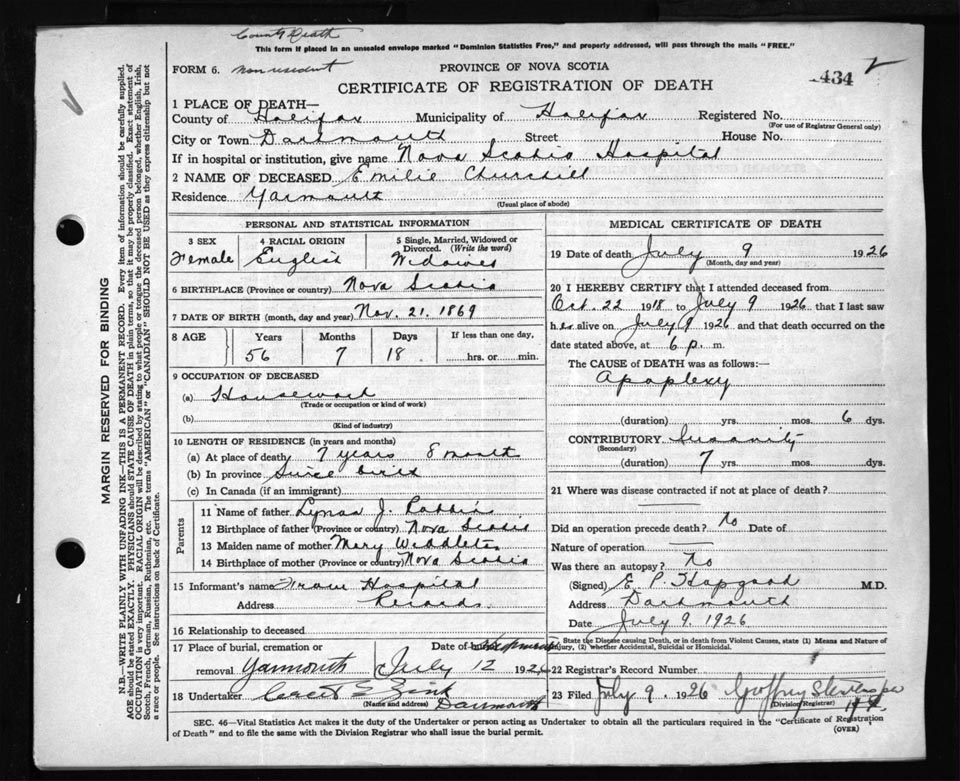 County Death
This form if placed in an unsealed envelope marked "Dominion Statistics Free," and properly addressed, will pass through the mails "FREE."
FORM 6. Non resident
PROVINCE OF NOVA SCOTIA
434 2
CERTIFICATE OF REGISTRATION OF DEATH
1 PLACE OF DEATH—
County of Halifax Municipality of Halifax Registered No.
(For use of Registrar General only)
City or Town Dartmouth Street House No.
If in hospital or institution, give name Nova Scotia Hospital
2 NAME OF DECEASED Emilie Churchill
Residence Yarmouth
(Usual place of abode)
PERSONAL AND STATISTICAL INFORMATION
3 SEX 4 RACIAL ORIGIN 5 Single, Married, Widowed or Divorced. (Write the word)
Female English Widowed
6 BIRTHPLACE (Province or country) Nova Scotia
7 DATE OF BIRTH (month, day and year) Nov. 21. 1869
8 AGE Years Months Days If less than one day,
56 7 18 hrs. or min.
9 OCCUPATION OF DECEASED
(a) Housework
(Trade or occupation or kind of work)
(b)
(Kind of industry)
10 LENGTH OF RESIDENCE (in years and months)
(a) At place of death 7 years 8 month
(b) In province Since birth
(c) In Canada (if an immigrant)
Parents
11 Name of father J.
12 Birthplace of father (Province or country) Nova Scotia
13 Maiden name of mother Mary
14 Birthplace of mother (Province or country) Nova Scotia
15 Informant's name From Hospital
Address Records.
16 Relationship to deceased
17 Place of burial, cremation or Date of burial
removal Yarmouth July 12 1926
18 Undertaker Zink
(Name and address) Dartmouth
MEDICAL CERTIFICATE OF DEATH
19 Date of death July 9 1926
(Month, day and year)
20 I HEREBY CERTIFY that I attended deceased from
Oct. 22 1918 to July 9 1926 that I last saw
her alive on July 9 1926 and that death occurred on
date stated above, at 6 p. m.
The CAUSE of DEATH was as follows:
Apoplexy
(duration) yrs. mos. 6 dys.
CONTRIBUTORY Insanity
(Secondary)
(duration) 7 yrs. mos. dys.
21 Where was disease contracted if not at place of death?
Did an operation precede death? No Date of
Nature of operation
Was there an autopsy? No
(Signed) E. P. Hapgood M.D.
Address Dartmouth
Date July 9, 1926
State the Disease causing Death, or in death from Violent Causes, state (1) Means and Nature of
Injury, (2) whether Accidental, Suicidal or Homicidal.
22 Registrar's Record Number
23 Filed July 9 1926 Geoffrey
(Division Registrar)
SEC. 46—Vital Statistics Act makes it the duty of the Undertaker or person acting as Undertaker to obtain all the particulars required in the "Certificate of Registration
of Death" and to file the same with the Division Registrar who shall issue the burial permit.
(OVER)
MARGIN RESERVED FOR BINDING
N.B.—WRITE PLAINLY WITH UNFADING INK—THIS IS A PERMANENT RECORD. Every item of information should be carefully supplied.
AGE should be stated EXACTLY. PHYSICIANS should STATE CAUSE OF DEATH in plain terms, so that it may be properly classified. Exact statement of
OCCUPATION is very important. RACIAL ORIGIN will be described by stating to what people or tongue the deceased person belonged, whether English, Irish,
Scotch, French, German, Russian, Ruthenian, etc. The terms "AMERICAN" or "CANADIAN" SHOULD NOT BE USED as they express citizenship but not
a race or people. See instructions on back of Certificate.